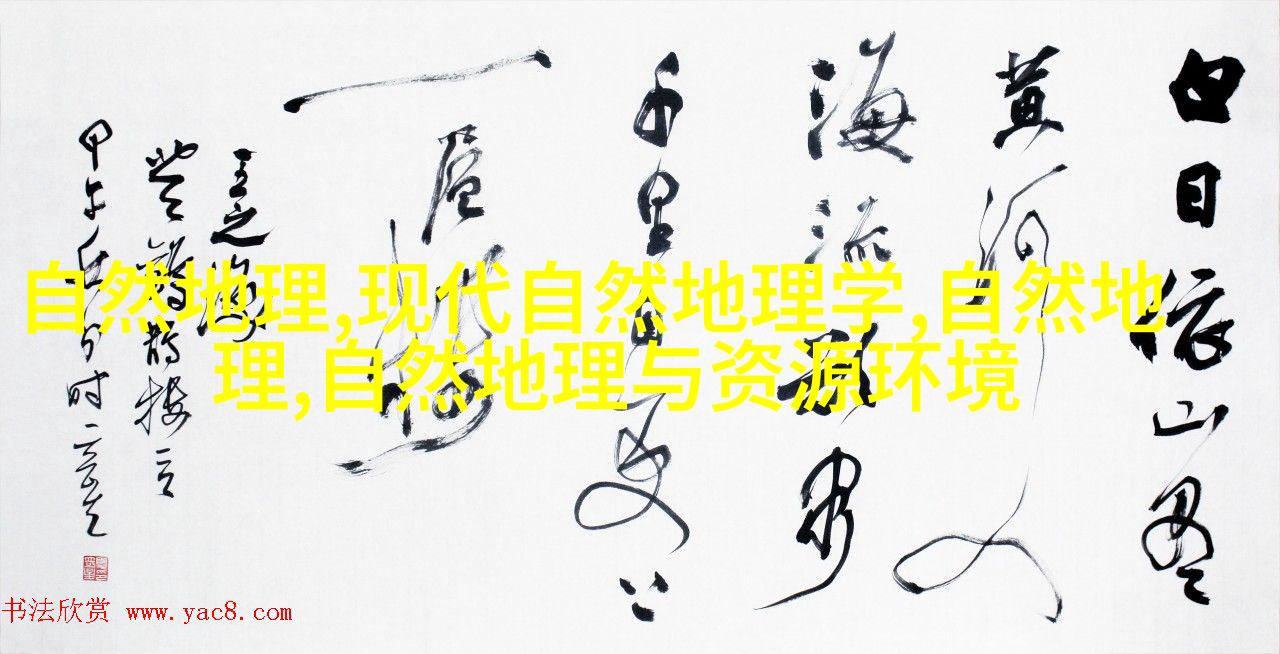 白日依山尽
黄河入
海流欲穷
千里目更上
一層楼
王之涣
登鹳鹊楼
甲午
自然地理,现代自然地理学,自然地
理,自然地理与资源环境
书法欣赏 www.yac8.com